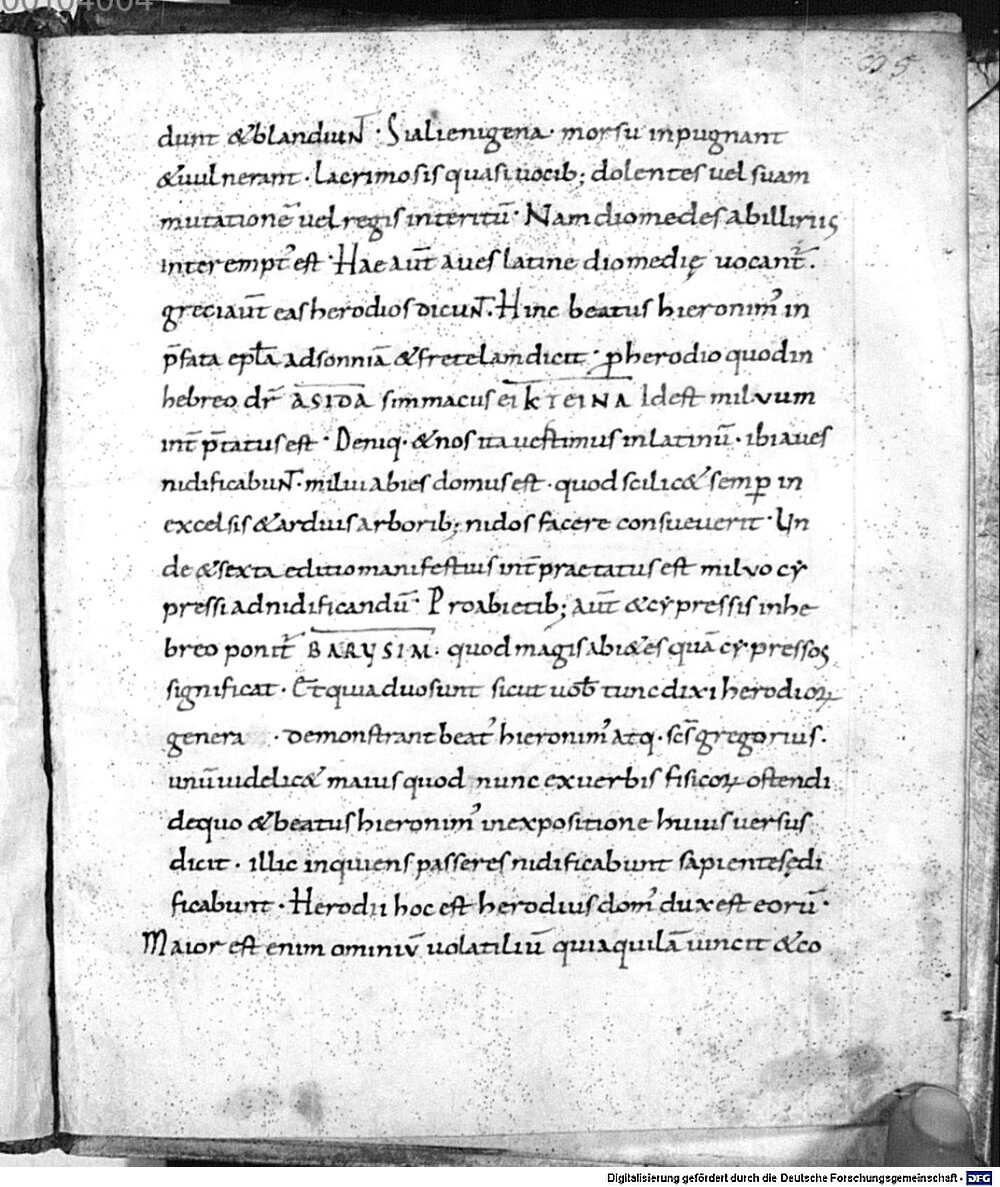 00104004
395
dunt &blandiunt : Si alienigena · morsu inpugnant
&uulnerant · lacrimosis quasi uocib; dolentes uel suam
mutationē uel regis interitū · Nam diomedes ab illiriis
interempt᾽ est · Hae aūt aues latine diomedię uocant᷑ .
greci aūt eas herodios dicunt . Hinc beatus hieronim᾽ in
p̄fata epl̄a ad sonniā & fretelam dicit · ꝑ herodio quod in
hebreo dr̄ ASIDA simmacus eiKTEINA Idest milvum
int̄ p̄tatus est · Deniq· & nos ita uestimus in latinū · ibi aues
nidificabunt · milui abies domus est · quod scilic& semꝑ in
excelsis & arduis arborib; nidos facere consueuerit · Un
de & sexta editio manifestius int̄praetatus est milvo cy
pressi ad nidificandū · Pro abietib; aūt & cypressis in he
breo ponit᷑ BARUSIM · quod magis abi&es quā cypressos
significat · Et quia duo sunt sicut uob̄ tunc dixi herodioꝝ
genera · demonstrant beat᾽ hieronim᾽ atq· scs̄ gregorius .
unū uidelic& maius quod nunc ex uerbis fisicoꝝ ostendi
de quo & beatus hieronim᾽ in expositione huius uersus
dicit · illic inquiens passeres nidificabunt sapientes ędi
ficabunt · Herodii hoc est herodius dom᾽ dux est eorū ·
Maior est enim ominiū uolatiliū quia aquilā uincit & co
Digitalisierung gefördert durch die Deutsche Forschungsgemeinschaft - DFG